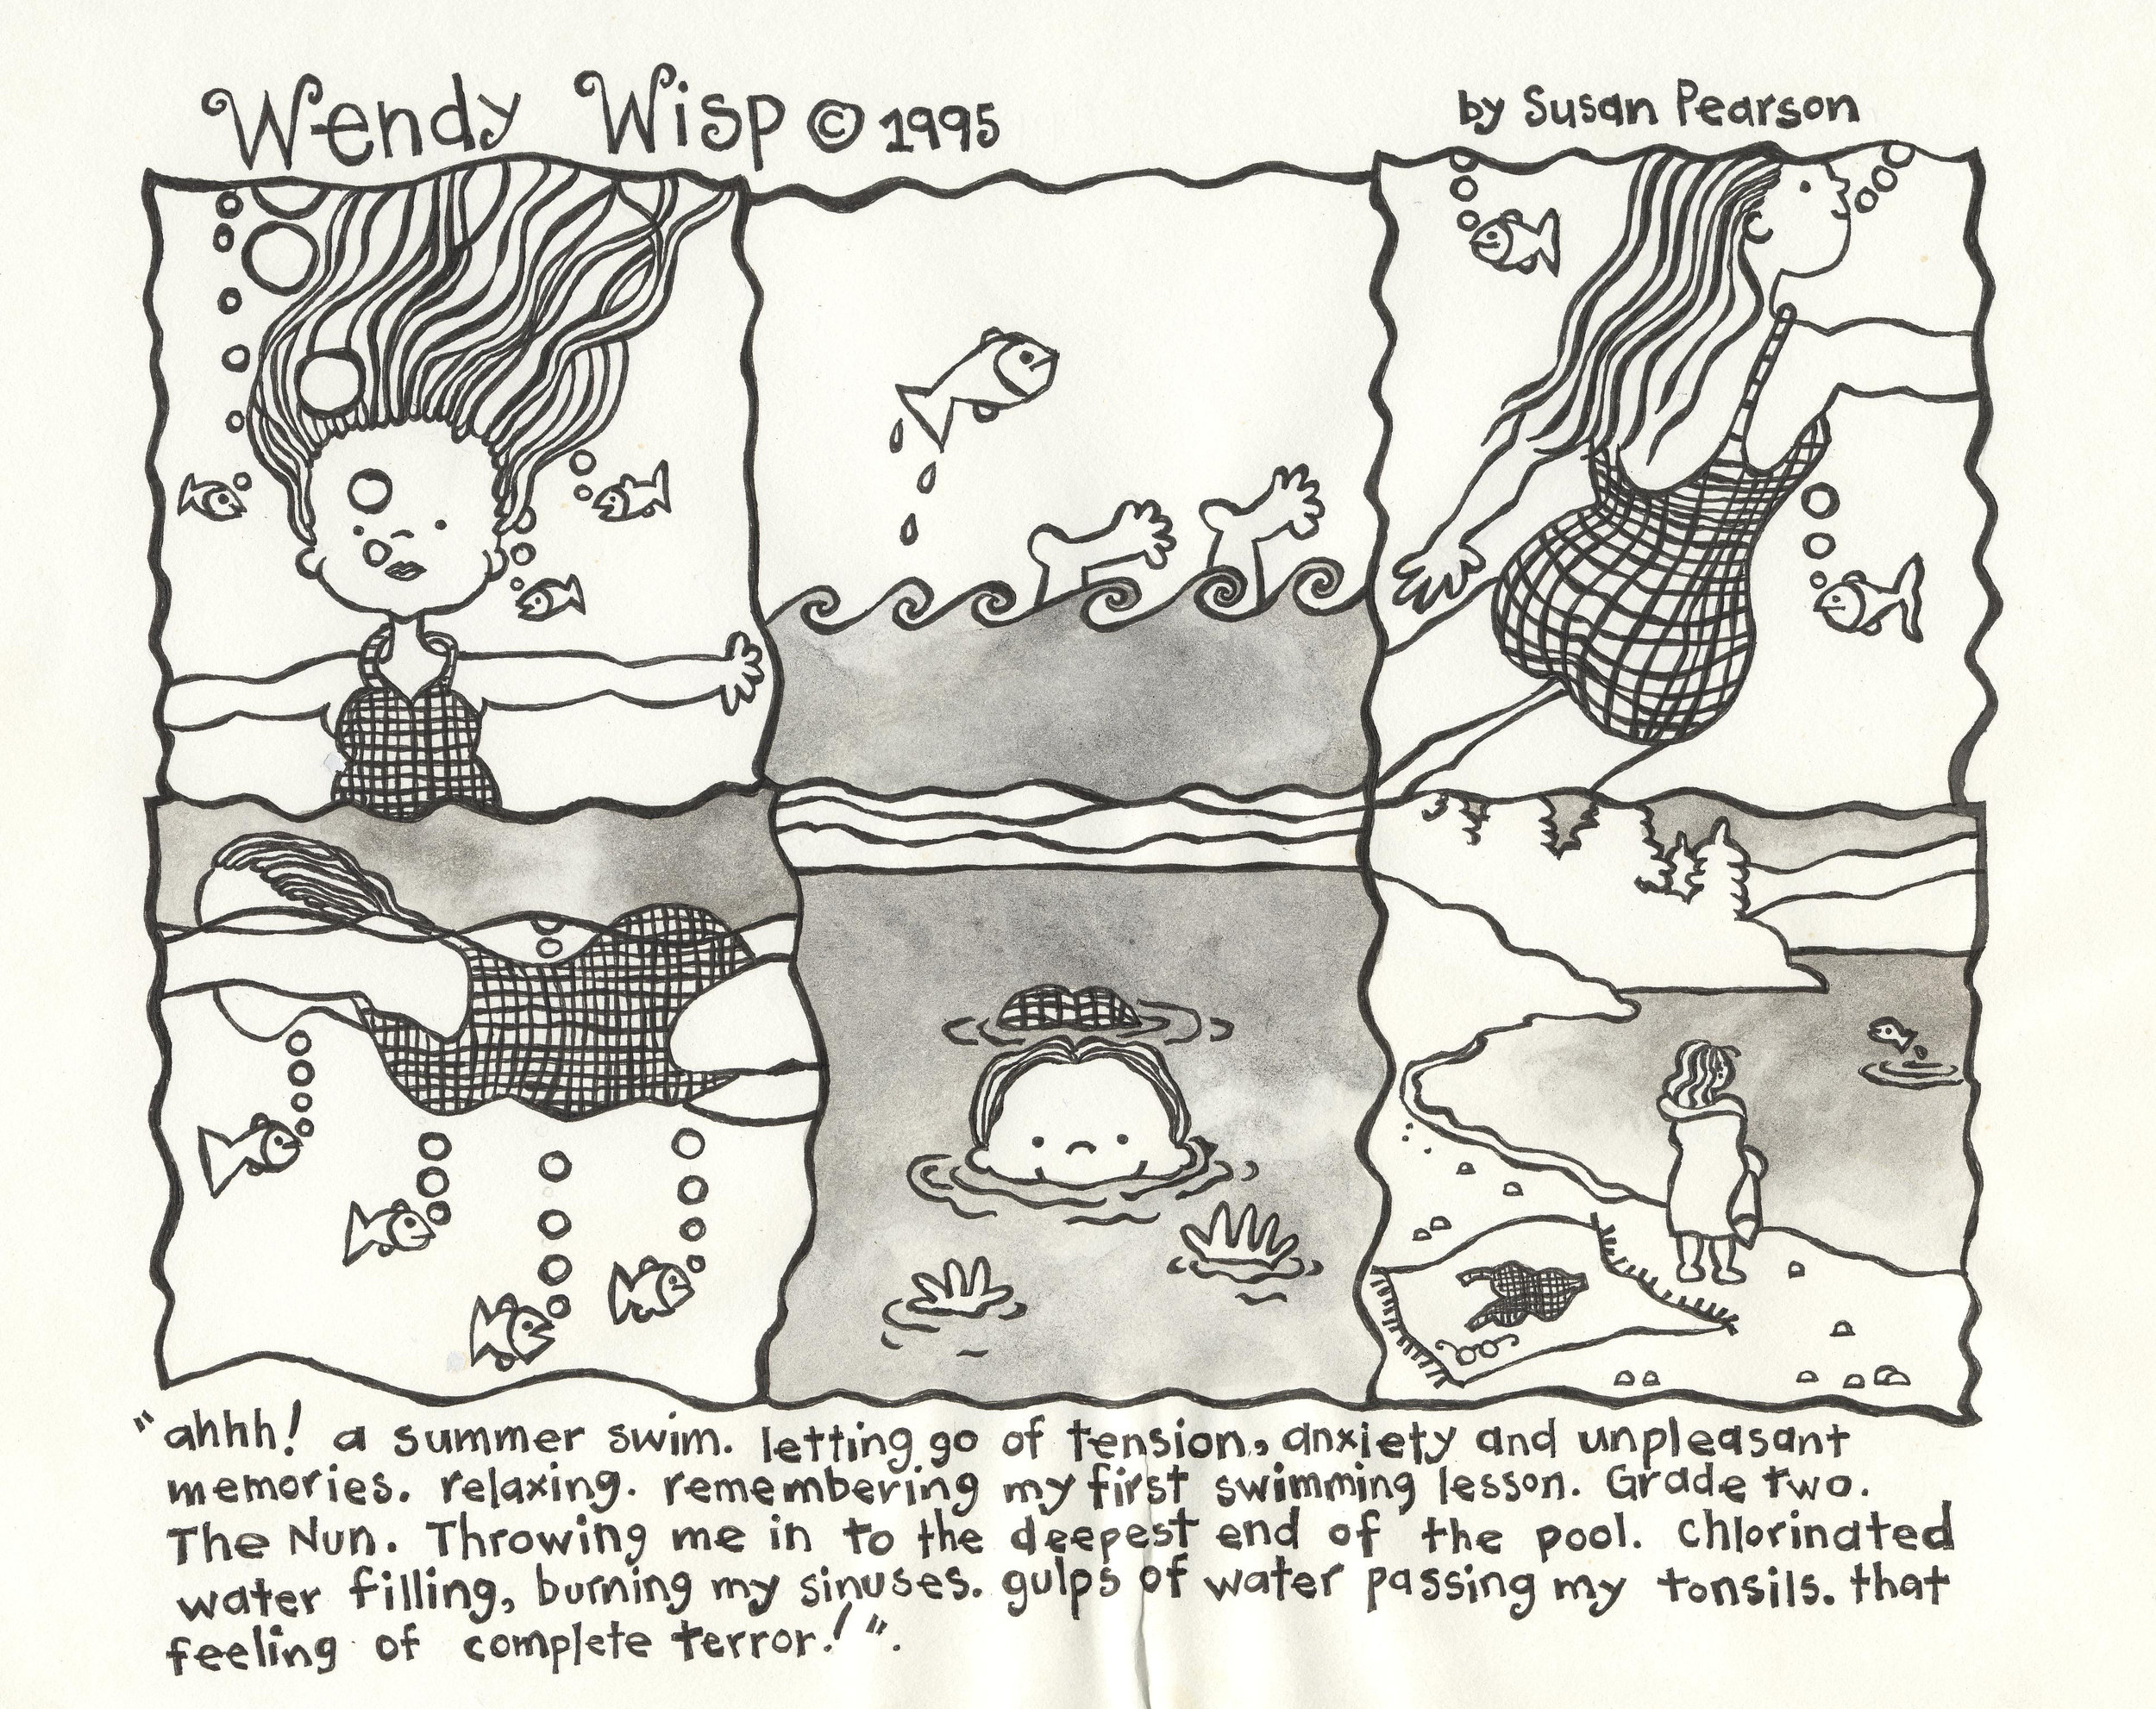 Wendy Wisp © 1995
by Susan Pearson
"ahhh! a summer swim. letting go of tension, anxiety and unpleasant
memories. relaxing. remembering my first swimming lesson. Grade two.
The Nun. Throwing me in to the deepest end of the pool. chlorinated
water filling, burning my sinuses. gulps of water passing my tonsils. that
feeling of complete terror!".